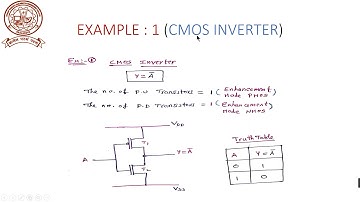 EXAMPLE : 1 (CMOS INVERTER)
Ex:- ① CMOS Inverter
Y = A̅
The no. of P.U Transistors = 1 (Enhancement Mode PMOS)
The no. of P.D Transistors = 1 (Enhancement Mode NMOS)
VDD
T1
A
Y = A̅
T2
VSS
Truth Table
A Y = A̅
0 1
1 0